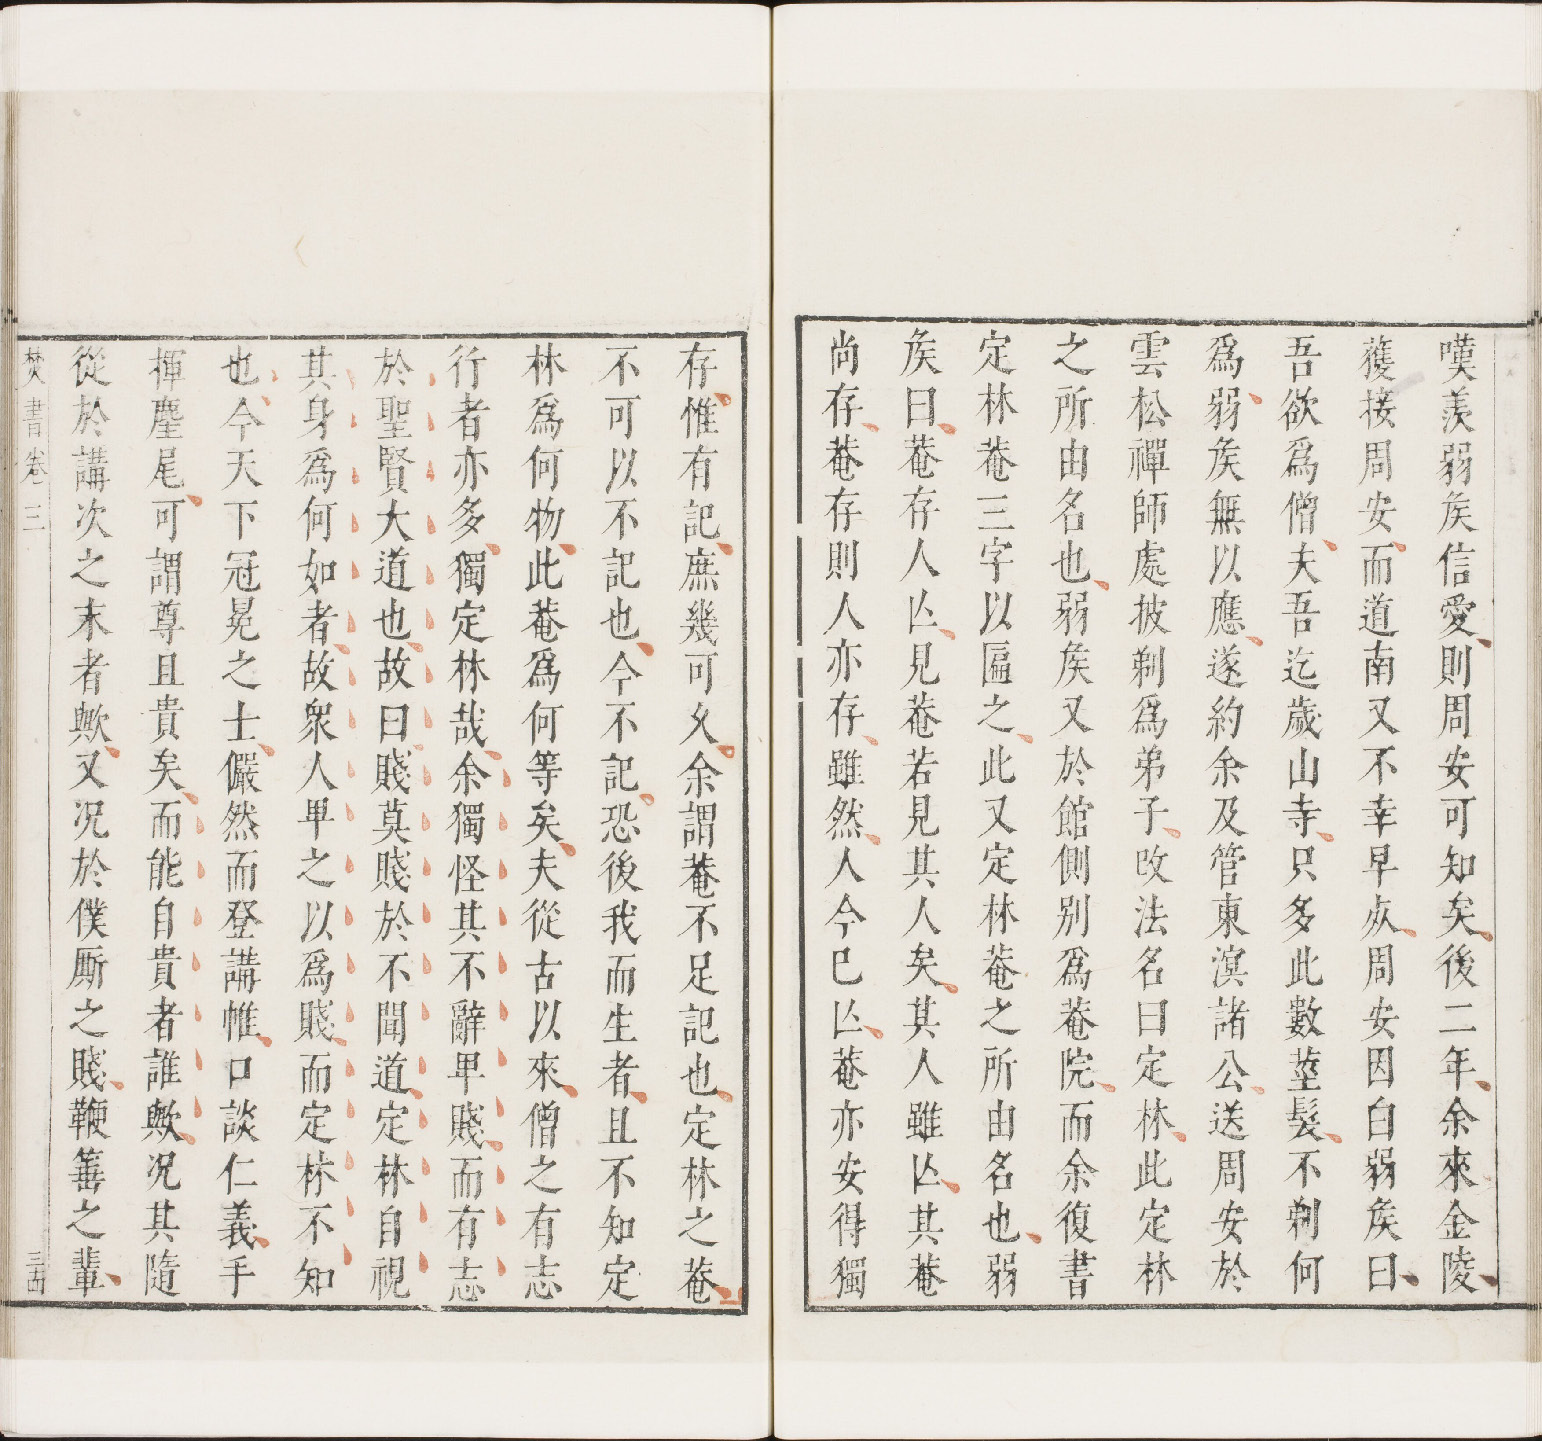 嘆羨弱矦信愛則周安可知矣後二年余來金陵
獲接周安而道南又不幸早夾周安因白弱矦曰
吾欲爲僧夫吾迄歲山寺只多此數莖髮不剃何
爲弱矦無以應遂約余及管東溟諸公送周安於
雲松禪師處披剃爲弟子改法名曰定林此定林
之所由名也弱矦又於館側别爲菴院而余復書
定林菴三字以匾之此又定林菴之所由名也弱
矦曰菴存人亾見菴若見其人矣其人雖亾其菴
尚存菴存則人亦存雖然人今已亾菴亦安得獨
存惟有記庶幾可久余謂菴不足記也定林之菴
不可以不記也今不記恐後我而生者且不知定
林爲何物此菴爲何等矣夫從古以來僧之有志
行者亦多獨定林哉余獨怪其不辭卑賤而有志
於聖賢大道也故曰賤莫賤於不聞道定林自視
其身爲何如者故衆人卑之以爲賤而定林不知
也今天下冠冕之士儼然而登講帷口談仁義手
揮麈尾可謂尊且貴矣而能自貴者誰歟况其隨
從於講次之末者歟又况於僕厮之賤鞭箠之輩
焚書卷三
三古